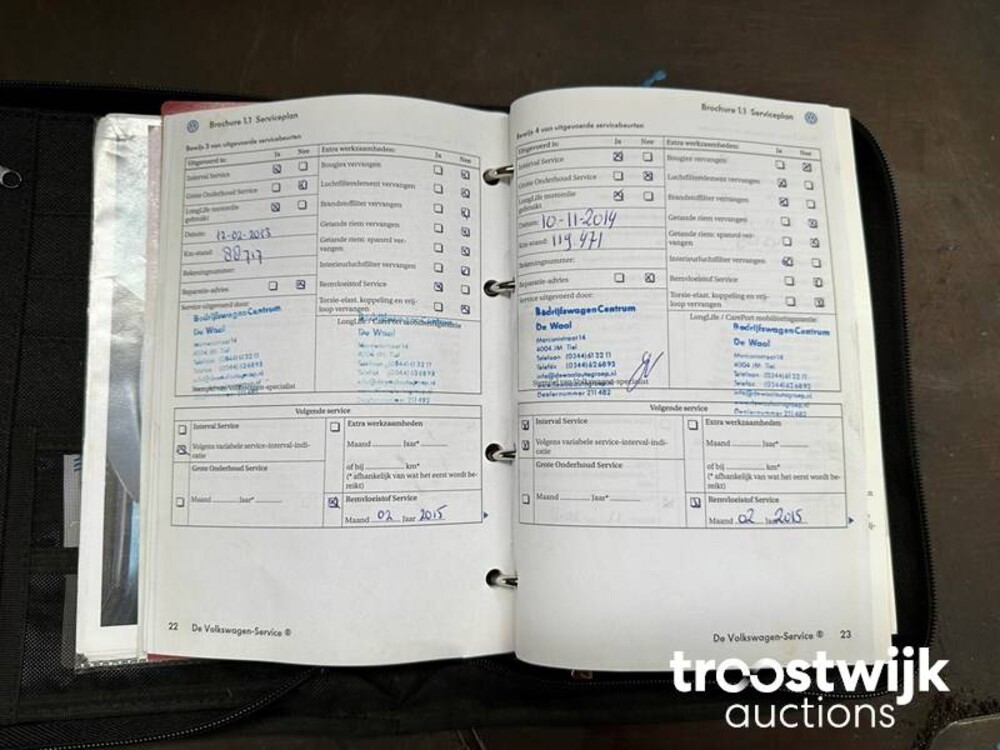 Brochure 1.1 Serviceplan
Bewijs 3 van uitgevoerde servicebeurten
Uitgevoerd is: Ja Nee
Interval Service
Grote Onderhoud Service
LongLife motorolie
gebruikt
Datum: 12-02-2013
Km-stand: 88717
Rekeningnummer:
Reparatie-advies
Service uitgevoerd door:
Bedrijfswagen Centrum
De Waal
Marconistraat 14
4004 JM Tiel
Telefoon (0344) 61 32 11
Telefax (0344) 62 68 92
Extra werkzaamheden: Ja Nee
Bougies vervangen
Luchtfilterelement vervangen
Brandstoffilter vervangen
Getande riem vervangen
Getande riem: spanrol ver-
vangen
Interieurluchtfilter vervangen
Remvloeistof Service
Torsie-elast. koppeling en vrij-
loop vervangen
LongLife / CarePort mobiliteitsgarantie
Bedrijfswagen Centrum
De Waal
Marconistraat 14
4004 JM Tiel
Telefoon (0344) 61 32 11
Telefax (0344) 62 68 92
Dealernummer 211 482
Volgende service
Interval Service
Volgens variabele service-interval-indi-
catie
Grote Onderhoud Service
Maand Jaar*
Extra werkzaamheden
Maand Jaar*
of bij km*
(* afhankelijk van wat het eerst wordt be-
reikt)
Remvloeistof Service
Maand 02 Jaar 2015
22 De Volkswagen-Service ®
Brochure 1.1 Serviceplan
Bewijs 4 van uitgevoerde servicebeurten
Uitgevoerd is: Ja Nee
Interval Service
Grote Onderhoud Service
LongLife motorolie
gebruikt
Datum: 10-11-2014
Km-stand: 119.471
Rekeningnummer:
Reparatie-advies
Service uitgevoerd door:
Bedrijfswagen Centrum
De Waal
Marconistraat 14
4004 JM Tiel
Telefoon (0344) 61 32 11
Telefax (0344) 62 68 92
Stempel van Volkswagen-specialist
Dealernummer 211 482
Extra werkzaamheden: Ja Nee
Bougies vervangen
Luchtfilterelement vervangen
Brandstoffilter vervangen
Getande riem vervangen
Getande riem: spanrol ver-
vangen
Interieurluchtfilter vervangen
Remvloeistof Service
Torsie-elast. koppeling en vrij-
loop vervangen
LongLife / CarePort mobiliteitsgarantie
Bedrijfswagen Centrum
De Waal
Marconistraat 14
4004 JM Tiel
Telefoon (0344) 61 32 11
Telefax (0344) 62 68 92
Dealernummer 211 482
Volgende service
Interval Service
Volgens variabele service-interval-indi-
catie
Grote Onderhoud Service
Maand Jaar*
Extra werkzaamheden
Maand Jaar*
of bij km*
(* afhankelijk van wat het eerst wordt be-
reikt)
Remvloeistof Service
Maand 02 Jaar 2015
De Volkswagen-Service ® 23
troostwijk
auctions